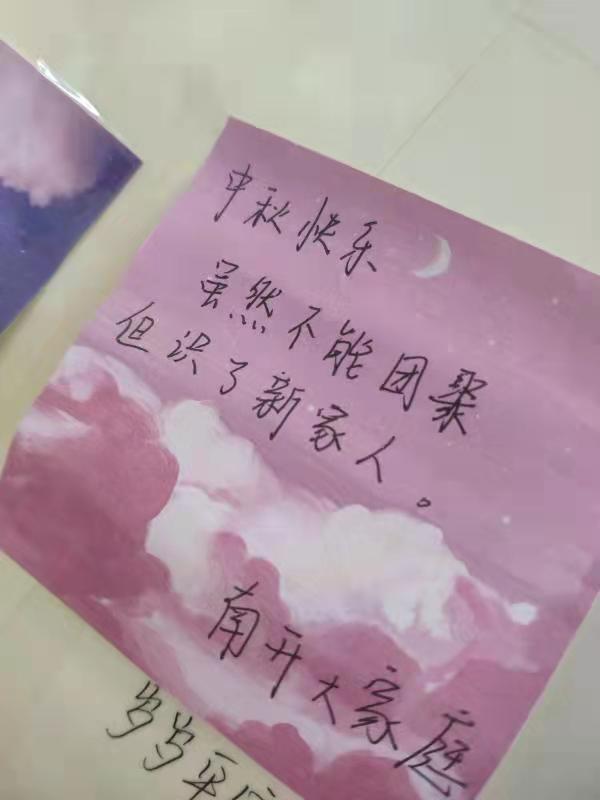 中秋快乐
虽然不能团聚
但识了新家人。
南开大家庭
岁岁平安